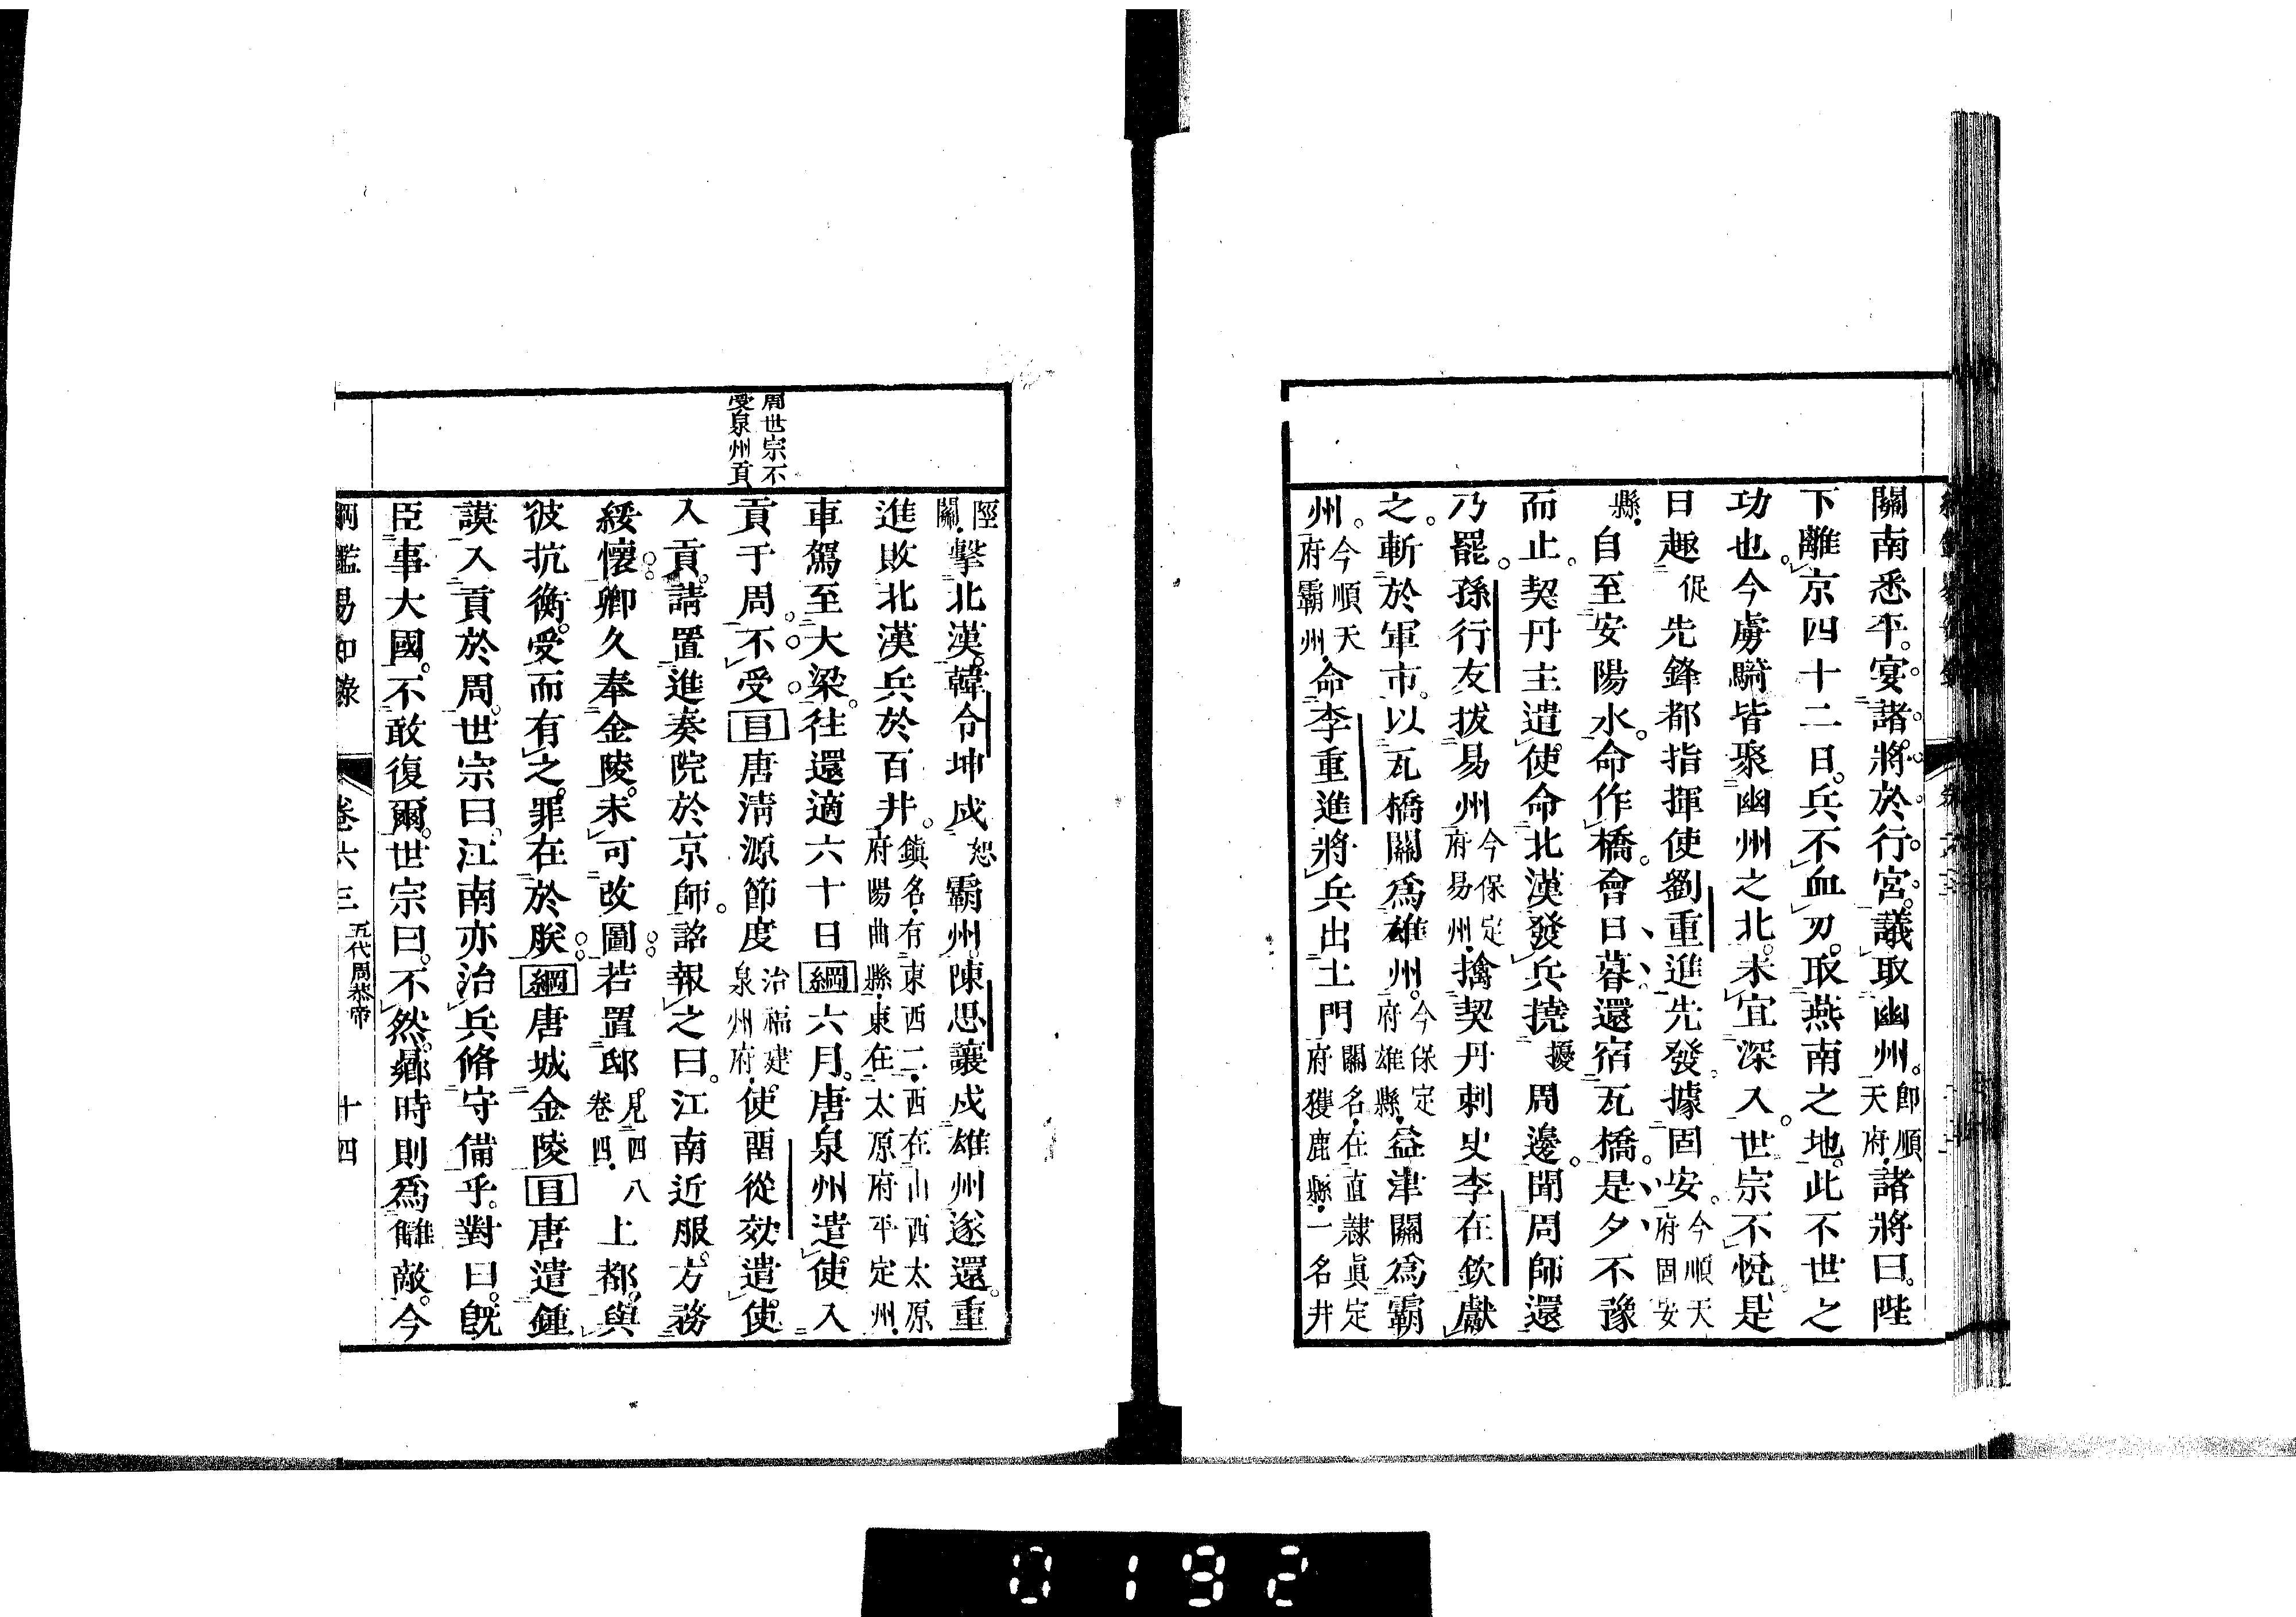 關南悉平。宴諸將於行宮。議取幽州。卽順天府。諸將曰。陛
下離京四十二日。兵不血刃。取燕南之地。此不世之
功也。今虜騎皆聚幽州之北。未宜深入。世宗不悅。是
日趣促先鋒都指揮使劉重進先發。據固安。今順天府固安
縣。自至安陽水。命作橋。會日暮還宿瓦橋。是夕不豫
而止。契丹主遣使命北漢發兵撓擾周邊。聞周師還
乃罷。孫行友拔易州今保定府易州。擒契丹刺史李在欽獻
之。斬於軍市。以瓦橋關爲雄州。今保定府雄縣。益津關爲霸
州。今順天府霸州。命李重進將兵出土門關名。在直隷眞定府獲鹿縣。一名井
陘關。擊北漢。韓令坤戍恕霸州。陳思讓戍雄州遂還。重
進敗北漢兵於百井。鎭名。有東西二。西在山西太原府陽曲縣。東在太原府平定州。
車駕至大梁。往還適六十日綱六月。唐泉州遣使入
貢于周。不受目唐淸源節度治福建泉州府。使畱從效遣使
入貢。請置進奏院於京師。詔報之曰。江南近服。方務
綏懷。卿久奉金陵。未可改圖。若置邸見四八卷四。上都。與
彼抗衡。受而有之。罪在於朕。綱唐城金陵目唐遣鍾
謨入貢於周。世宗曰。江南亦治兵脩守備乎。對曰。旣
臣事大國。不敢復爾。世宗曰。不然。鄕時則爲讎敵。今
周世宗不
受泉州貢
綱鑑易知錄 卷六三 五代周恭帝 十四
0192